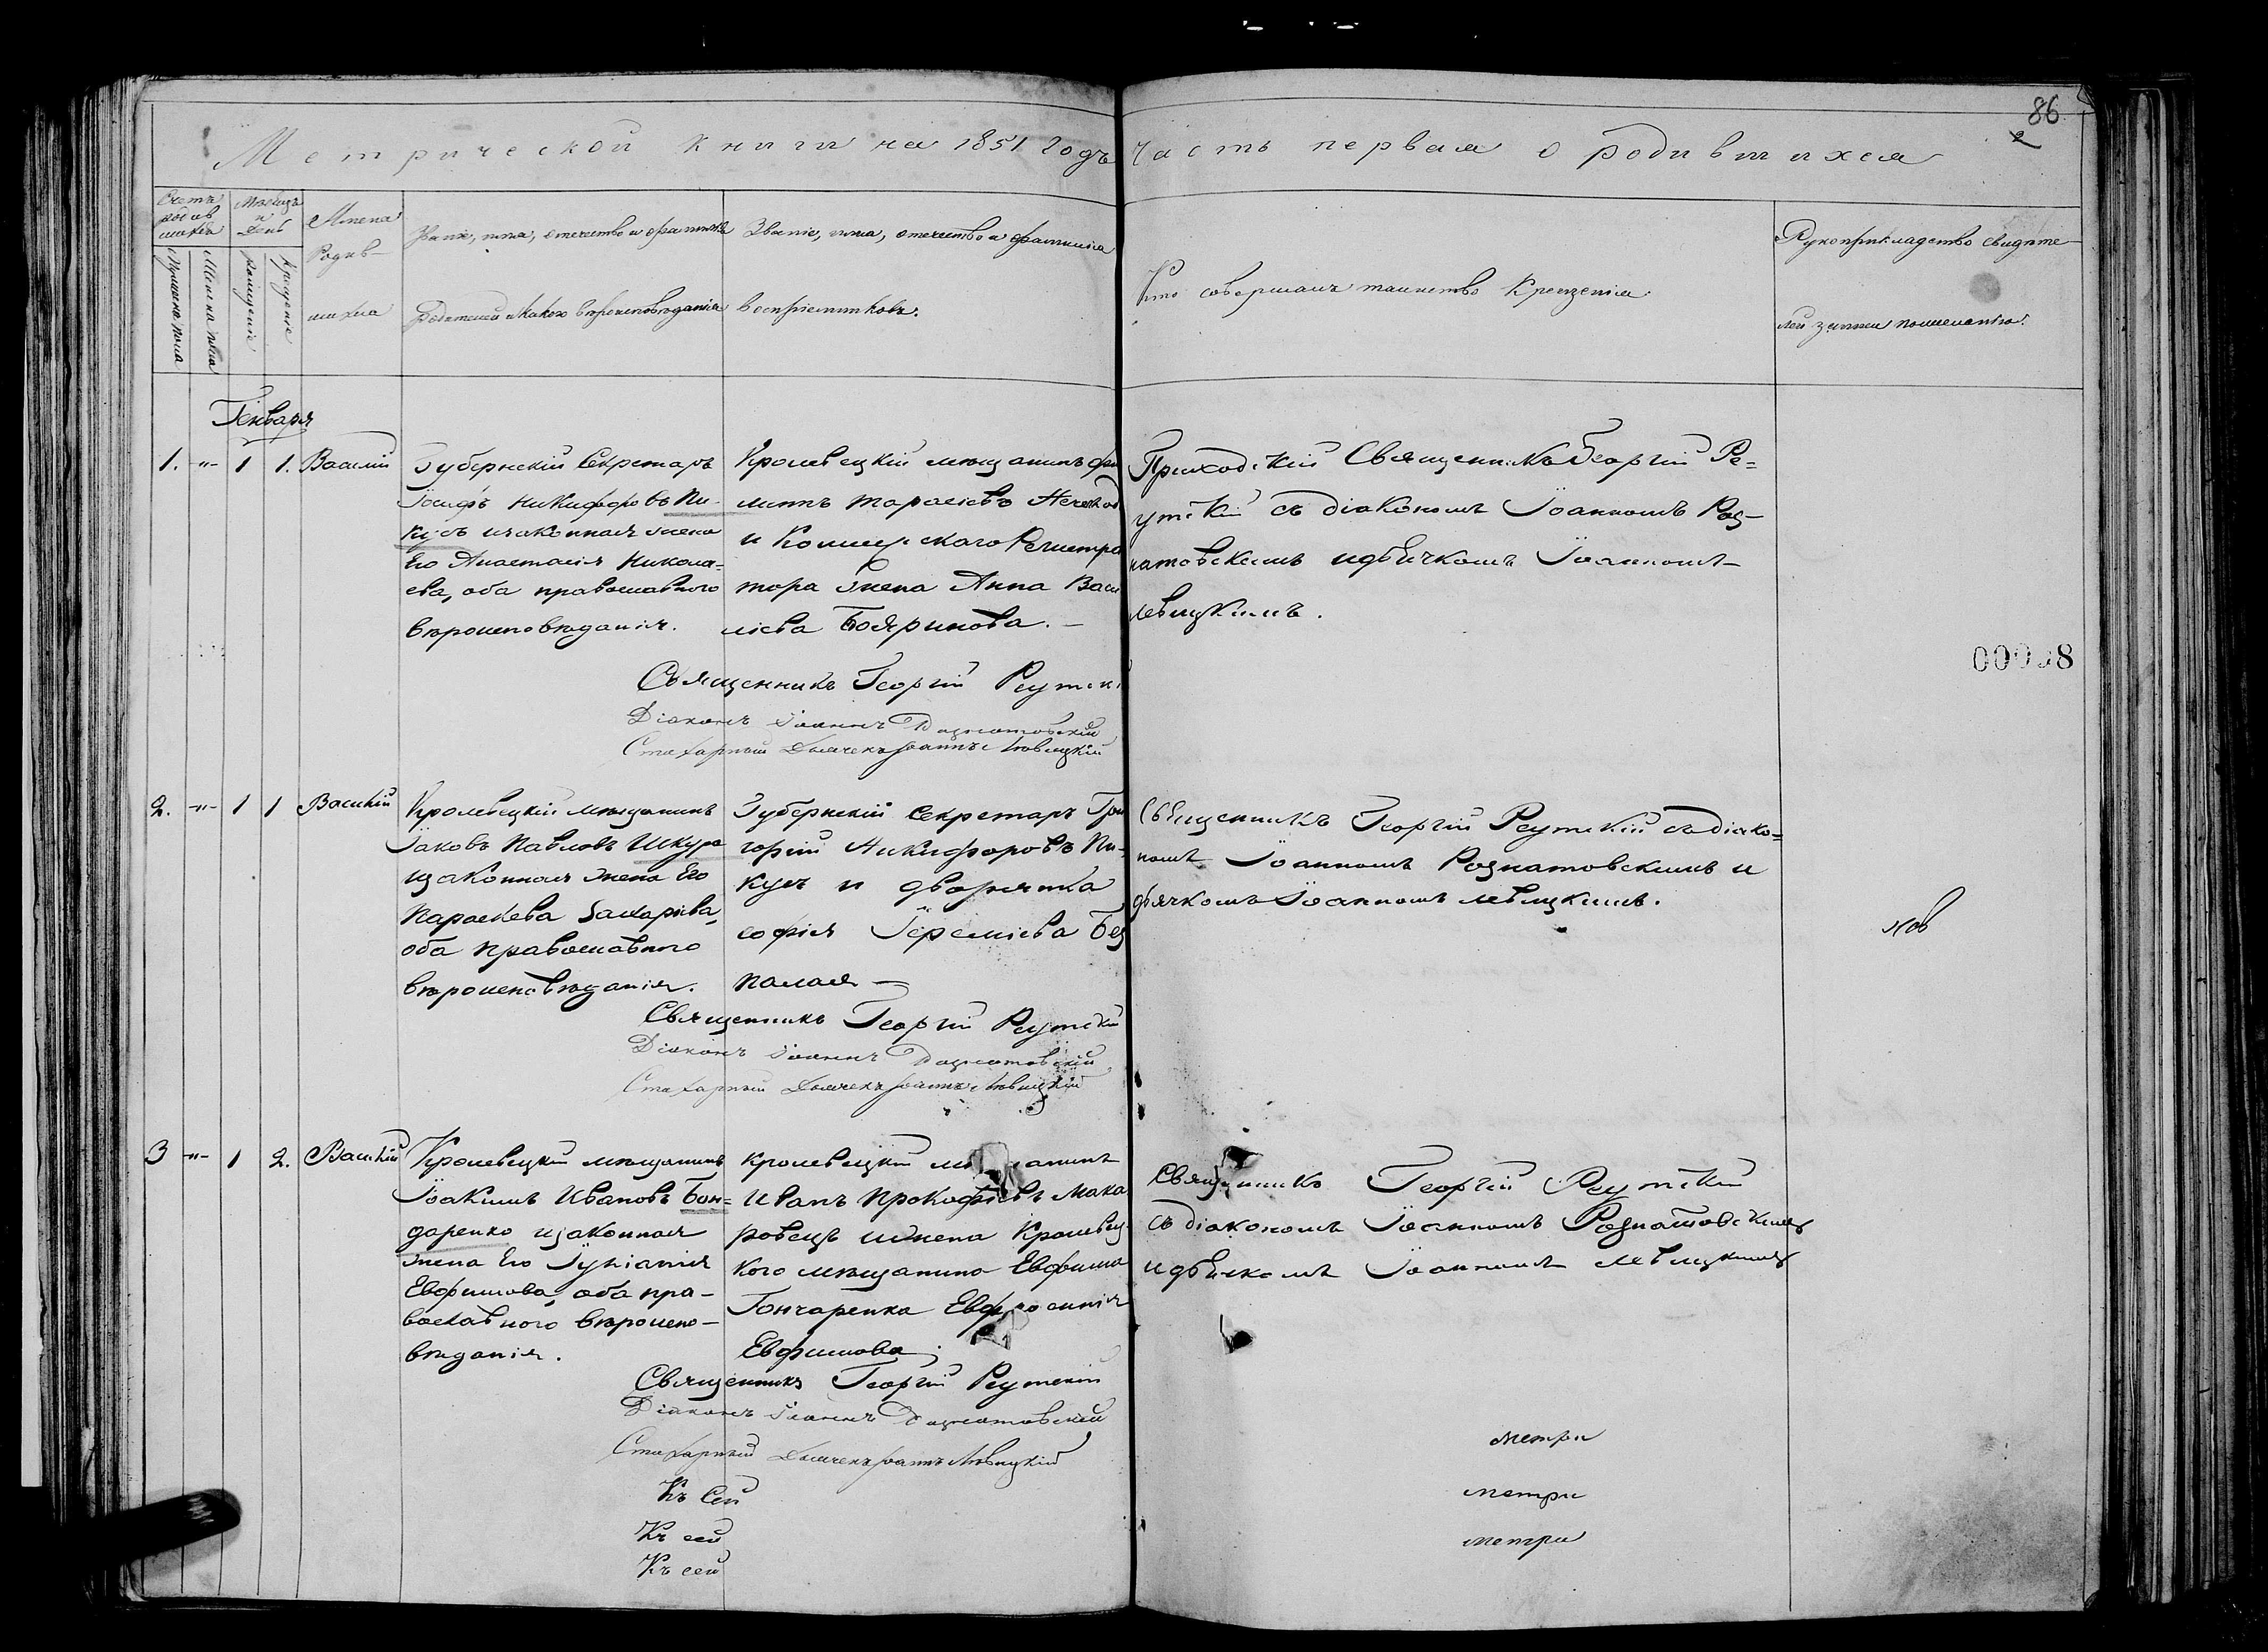 86
2
Метрической книги на 1851 годъ часть первая о родившихся
Счетъ родившихся
Мѣсяцъ и день
Имена Родив-
шихся
Званіе, имя, отечество и фамилія
Родителей и какого вѣроисповѣданія
Званіе, имя, отечество и фамилія
воспріемниковъ.
Кто совершалъ таинство Крещенія
Рукоприкладство свидѣте-
лей записи по желанію.
Мужеска пола
Женска пола
рожденіе
крещеніе
Генваря
1. -"- 1 1. Василій
Губернскій Секретарь
Іосифъ Никифоровъ Пи-
кусъ и законная жена
Его Анастасія Никола-
ева, оба православного
вероисповѣданія.
Кролевецкій мещанинъ Фи
липъ Тарасіевъ
и Колежского Регистра
тора жена Анна Васи
ліева Бояринова. -
Приходскій Священникъ Георгій Ре=
утскій съ діакономъ Іоанномъ Роз-
натовскимъ и дьячкомъ Іоанномъ
Левицкимъ.
Священникъ Георгій Реутскі
Діаконъ Іоаннъ Рознатовскій
Стихарный Дьячекъ Іоаннъ Левицкій
00008
2. -"- 1 1 Василій
Кролевецкій мещанинъ
Іаковъ Павловъ Шкура
и законная жена Его
Параскева Захаріева,
оба православного
вероисповѣданія.
Губернскій Секретарь Гри
горій Никифоровъ Пи-
кусъ и дворянка
Софія Іереміева Без
палая -
Священникъ Георгій Реутскій съ діако=
номъ Іоанномъ Рознатовскимъ и
дьячкомъ Іоанномъ Левицкимъ.
лов
Священникъ Георгій Реутскій
Діаконъ Іоаннъ Рознатовскій
Стихарный Дьячекъ Іоаннъ Левицкій
3 -"- 1 2. Василій
Кролевецкій мещанинъ
Іоакимъ Ивановъ Бон=
даренко и законная
жена Его Іуліанія
Евфимова, оба пра-
вославного вероиспо-
вѣданія.
Кролевецкій ме анинъ
Иванъ Прокофіевъ Мака
ровецъ и жена Кролевец
кого мещанина Евфима
Гончаренка Евфросинія
Евфимова.
Священникъ Георгій Реутскій
съ діакономъ Іоанномъ Рознатовскимъ
и дьячкомъ Іоанномъ Левицкимъ
Священникъ Георгій Реутскій
Діаконъ Іоаннъ Рознатовскій
Стихарный Дьячекъ Іоаннъ Левицкій
Къ Сей метри
Къ сей метри
Къ сей метри